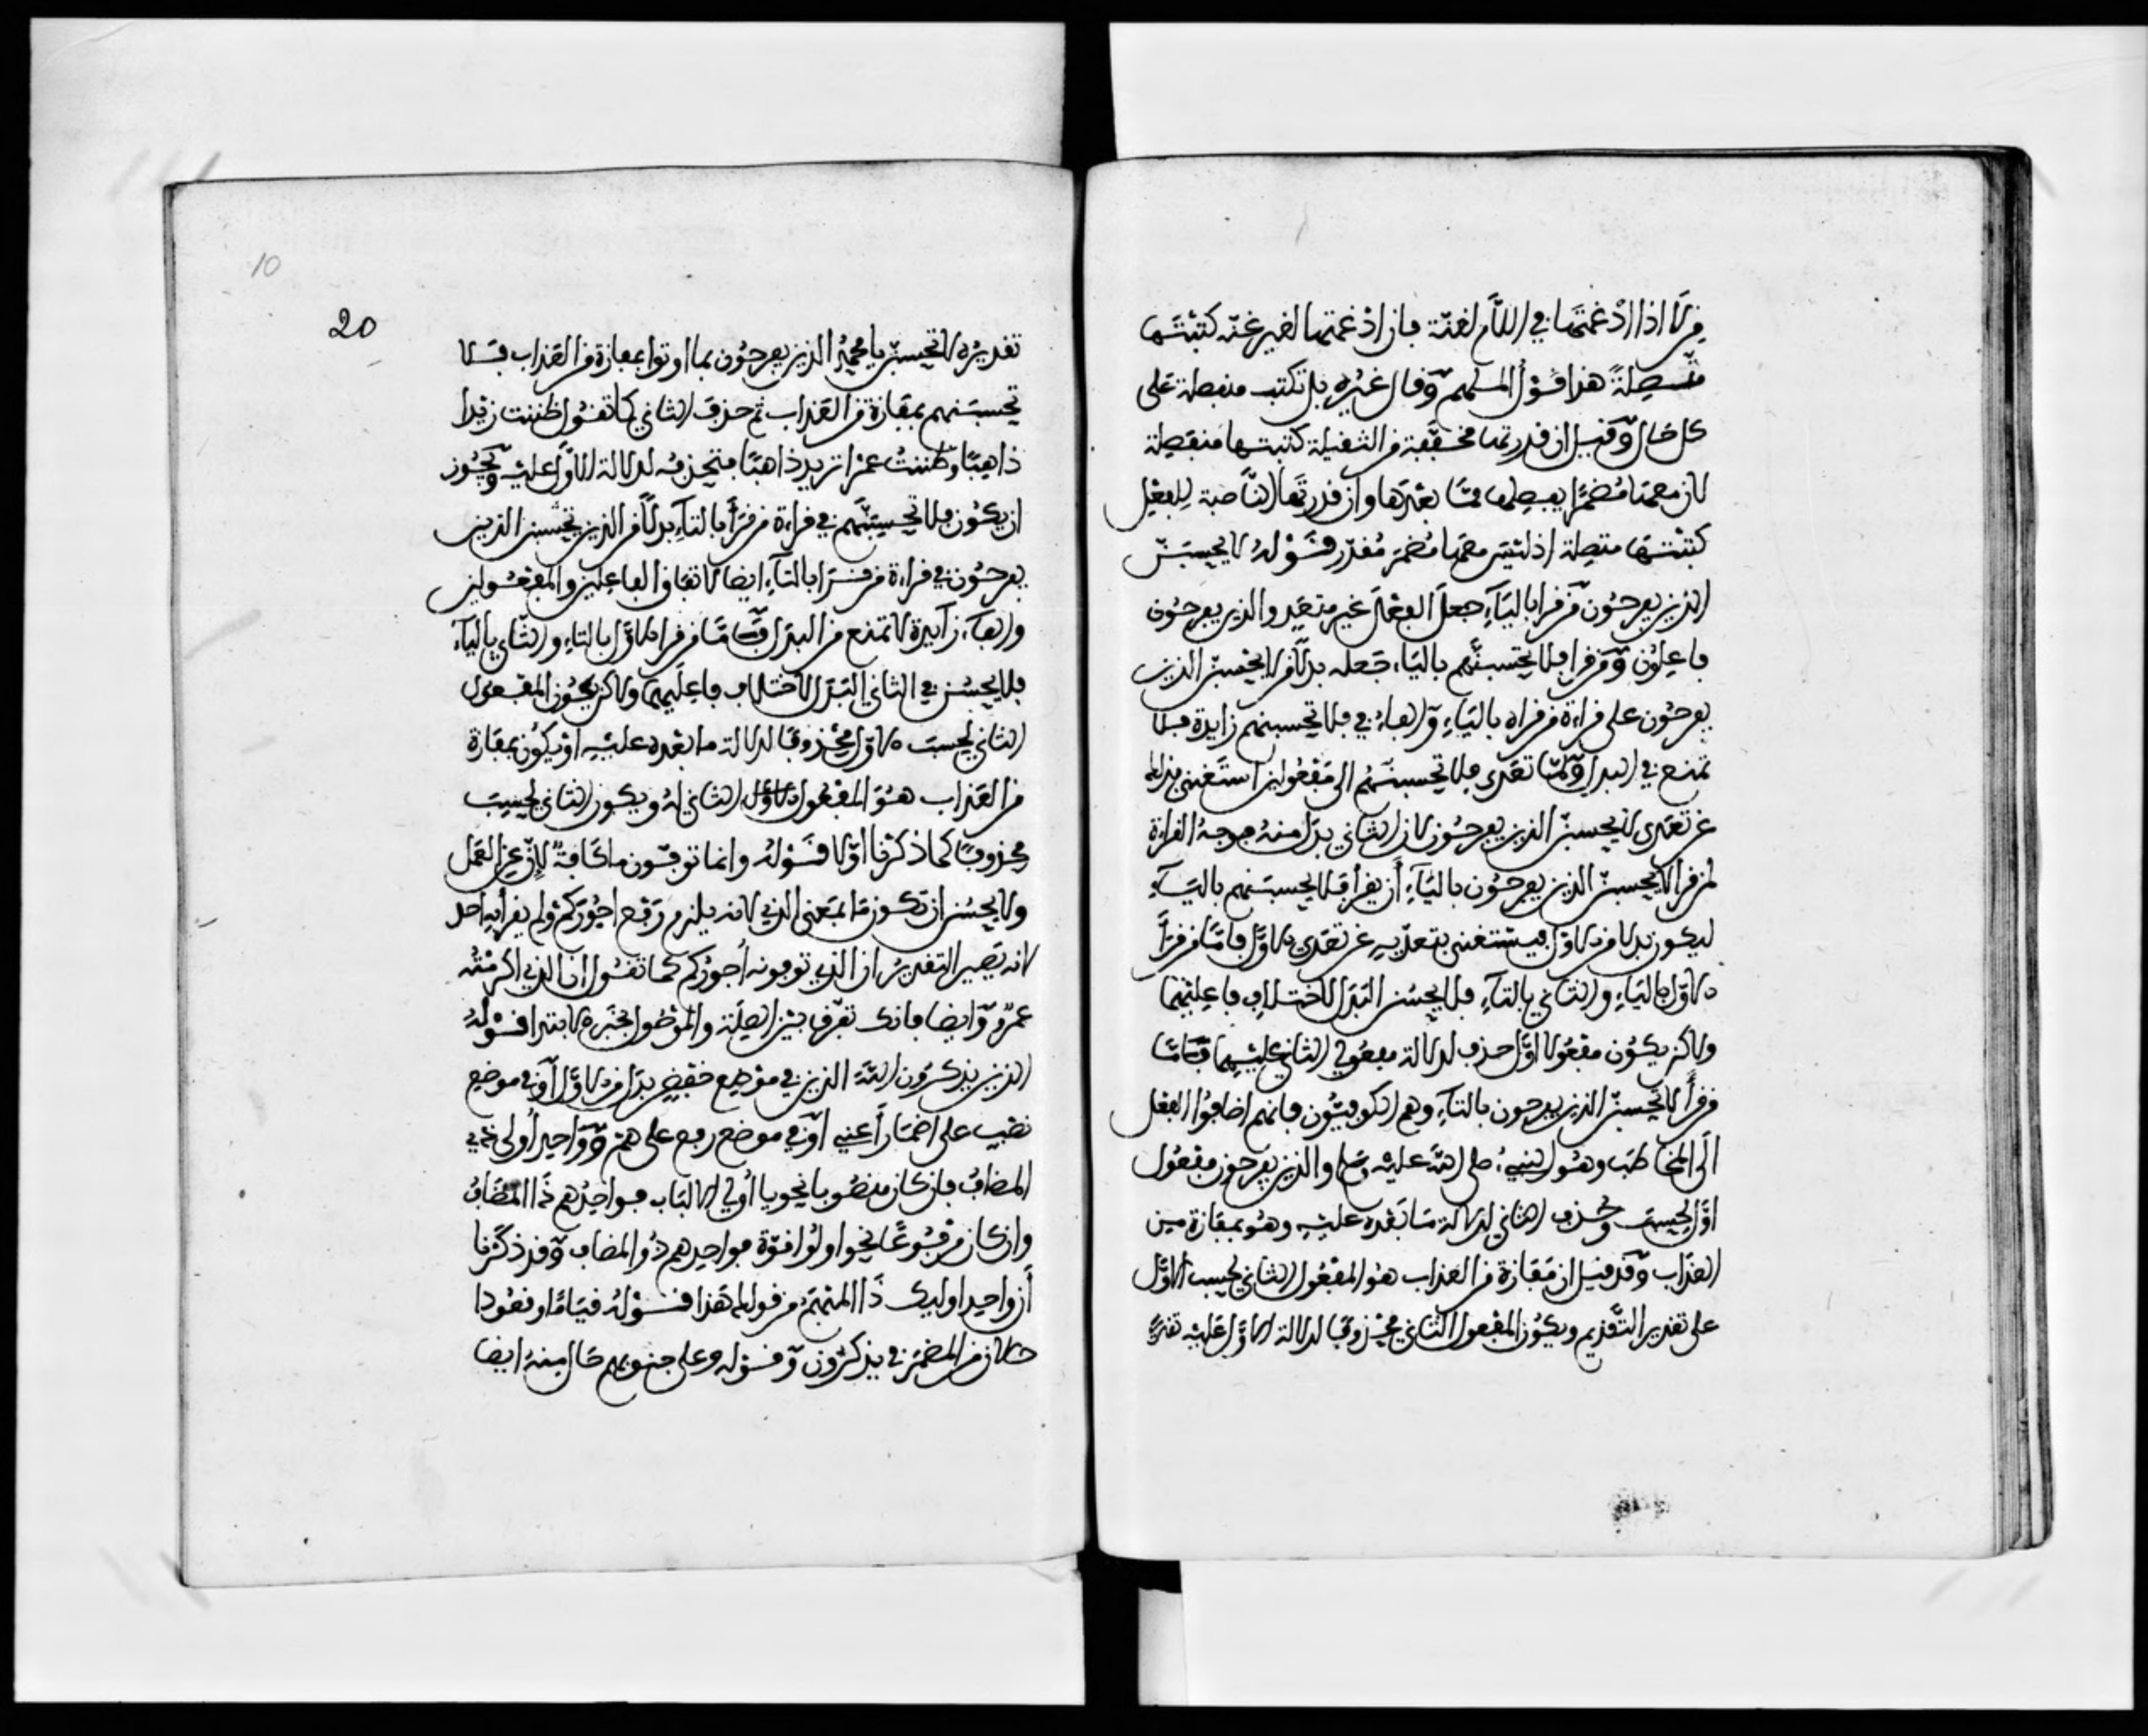 من لا اذا ادغمتها في اللام لغنة فان ادغمتها لغير غنة كتبتها
متصلة هذا قول المسلهم وقال غيره بل تكتب منفصلة على
كل حال وقيل ان قدرتها مخففة من الثقيلة كتبتها منفصلة
لان معها مضمرا يفصلها مما بعدها وان قدرتها الناصبة للفعل
كتبتها متصلة اذ ليس معها مضمر مقدر قوله لا يحسبن
الذين يفرحون من قرا بالياء جعل الفعل غير متعد والذين يفرحون
فاعلون ومن قرا فلا يحسبنهم بالياء جعله بدلا من لا يحسبن الذين
يفرحون على قراءة من قراه بالياء والفاء في فلا تحسبنهم زايدة فلا
تمنع في البدل ولما تعدى فلا تحسبنهم الى مفعولين استغنى بذلك
عن تعدى لا يحسبن الذين يفرحون لان الثاني بدل منه فوجه القراءة
لمن قرا لا يحسبن الذين يفرحون بالياء أن يقرأ فلا يحسبنهم بالياء
ليكون بدلا من الاول فيستغنى بتعديه عن تعدى الاول فاما من قرأ
الاول بالياء والثاني بالتاء فلا يحسن البدل لاختلاف فاعليهما
ولاكن يكون مفعولا اول حذف لدلالة مفعولي الثاني عليهما فاما
من قرأ لا تحسبن الذين يفرحون بالتاء وهم الكوفيون فانهم اضافوا الفعل
الى المخاطب وهو النبي صلى الله عليه وسلم والذين يفرحون مفعول
اول لحسب وحذف الثاني لدلالة ما بعده عليه وهو بمفازة من
العذاب وقد قيل ان مفازة من العذاب هو المفعول الثاني لحسب الاول
على تقدير التقديم ويكون المفعول الثاني محذوفا لدلالة الاول عليه تقديره
10
20
تقديره لا تحسبن يا محمد الذين يفرحون بما اوتوا بمفازة من العذاب فلا
تحسبنهم بمفازة من العذاب ثم حذف الثاني كما تقول ظننت زيدا
ذاهبا وظننت عمرا تريد ذاهبا فتحذفه لدلالة الاول عليه ويجوز
ان يكون فلا تحسبنهم في قراءة من قرأ بالتاء بدلا من الذين تحسبن الذين
يفرحون في قراءة من قرا بالتاء ايضا لاتفاق الفاعلين والمفعولين
والفاء زايدة لا تمنع من البدل فاما من قرا الاول بالتاء والثاني بالياء
فلا يحسن في الثاني البدل لاختلاف فاعليهما ولاكن يكون المفعول
الثاني لحسب الاول محذوفا لدلالة ما بعده عليه او يكون بمفازة
من العذاب هو المفعول الاول الثاني له ويكون الثاني لحسب
محذوفا كما ذكرنا اولا قوله وانما توفون ما كافة لإن عن العمل
ولا يحسن ان تكون ما بمعنى الذي لانه يلزم رفع اجوركم ولم يقرا به احد
لانه يصير التقدير ان الذي توفونه أجوركم كما تقول ان الذي اكرمته
عمرو وايضا فانك تفرق بين الصلة والموصول بخبر الابتدا قوله
الذين يذكرون الله الذين في موضع خفض بدل من الاول او في موضع
نصب على اضمار أعني او في موضع رفع على هم وواحد أولي ذي
المضاف فان كان منصوبا نحو يا أولي الالباب فواحدهم ذا المضاف
وان كان مرفوعا نحو اولوا قوة فواحدهم ذو المضاف وقد ذكرنا
أن واحد اوليك ذا المبهم من قولك هذا قوله قياما وقعودا
حالان من المضمر في يذكرون وقوله وعلى جنوبهم حال منه ايضا